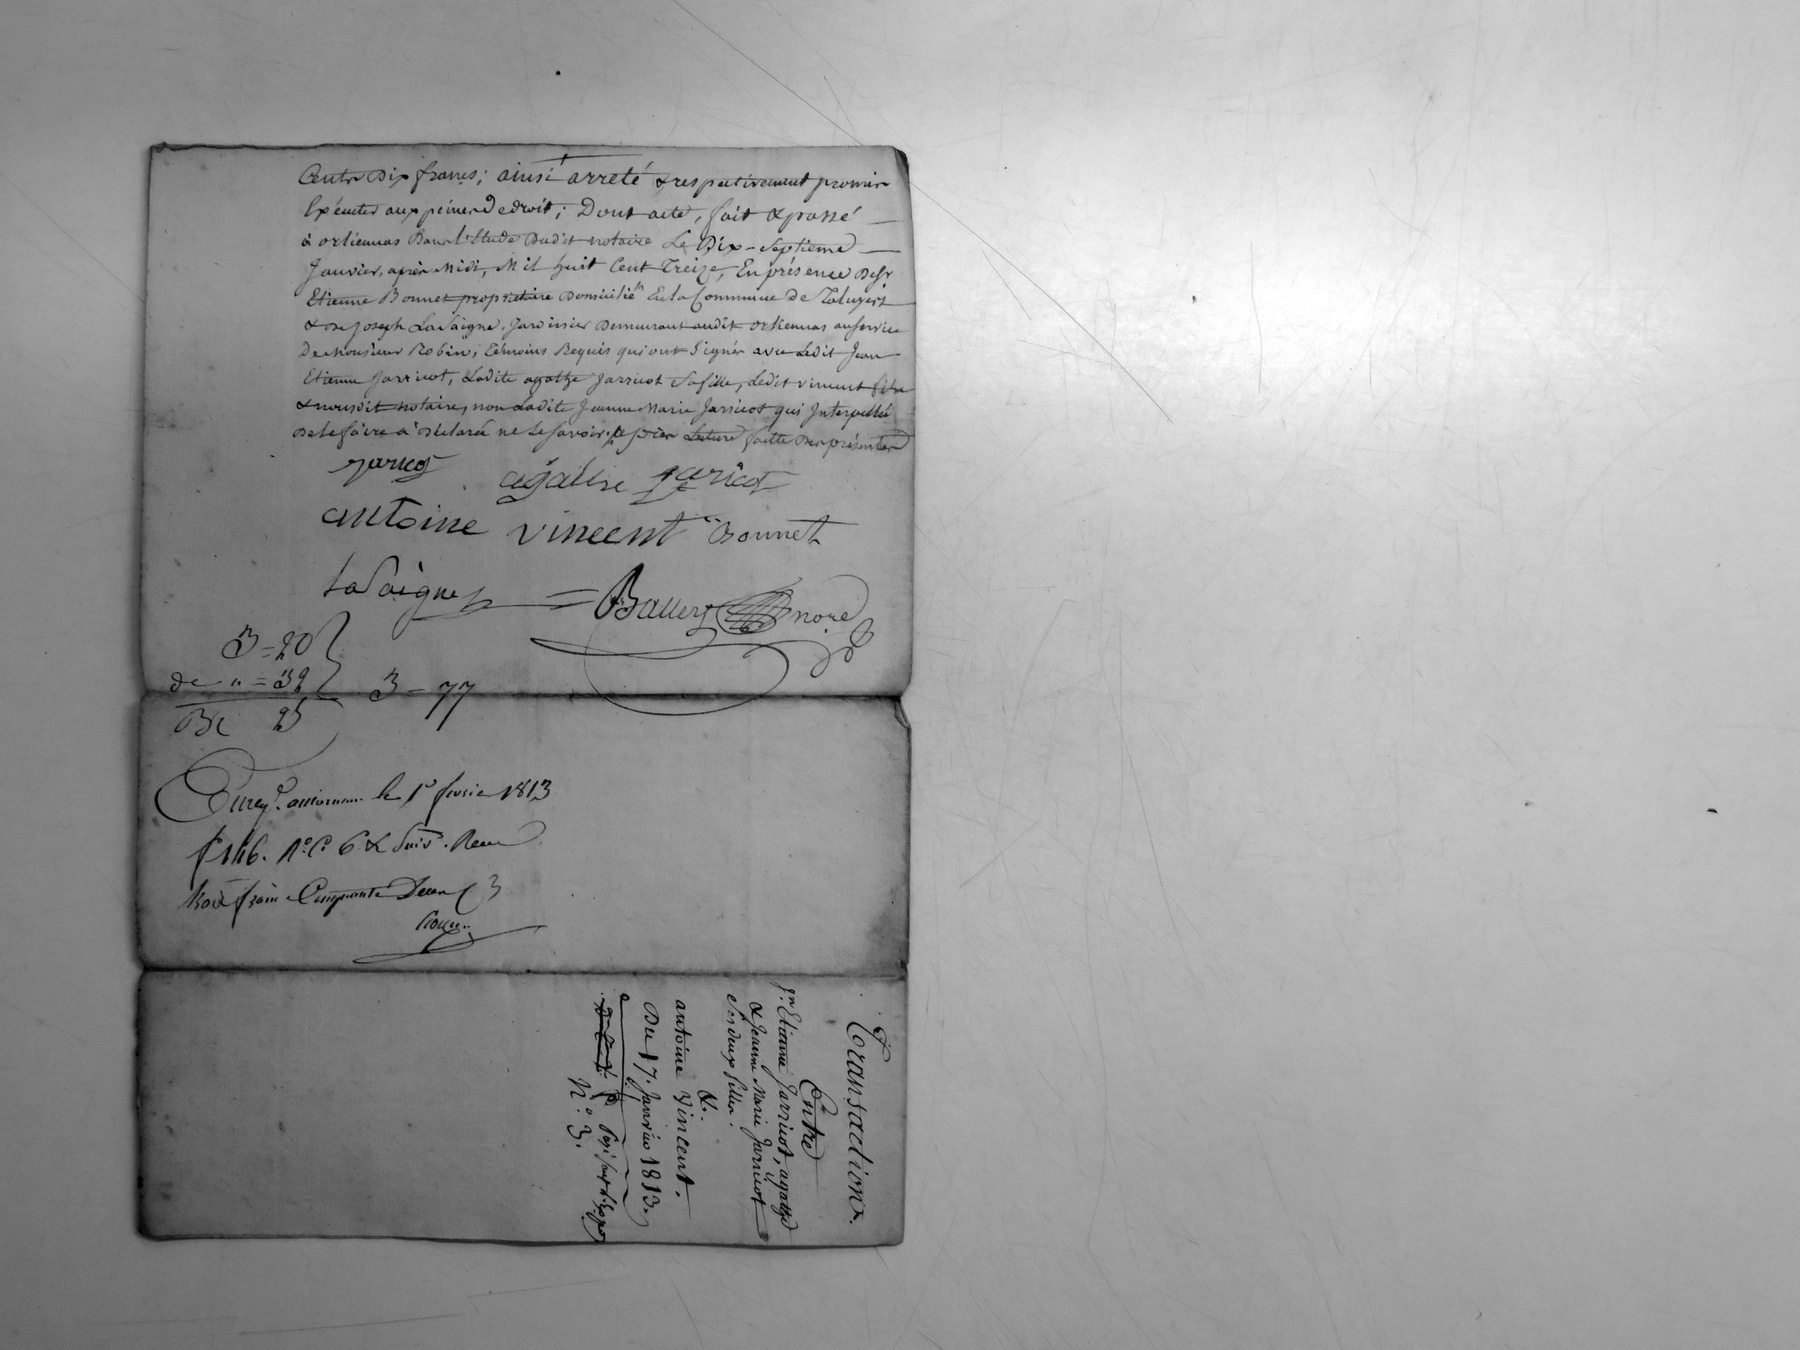 Cent dix francs; ainsi arreté & respectivement promis
Exécuter aux peines de droit; Dont acte, fait & passé
à orliennas Dans l'Etude Dudit notaire Le Dix-Septieme
Janvier, après Midi, Mil huit Cent Treize, En présence De Sr
Etienne Bonnet propriétaire Domicilié En la Commune de Taluyers
& De Joseph LaSaigne, Jardinier Demeurant audit orliennas au service
De Monsieur Robin; Témoins Requis qui ont Signés avec Ledit Jean
Etienne Jarricot, Ladite agathe Jarricot Sa fille, Ledit vincent
& nousdit notaire, non Ladite Jeanne Marie Jarricot qui Interpellée
De le faire a Déclaré ne le savoir, Lecture faitte Des présentes
jaricot agathe jaricot
antoine vincent Bonnet
laSaigne = Ballery nore
3 = 20
de " = 32 3 = 77
25
Enreg. le 1er fevrier 1813
fo 146. Ro. Co. 6 & Suiv. Recu
trois francs Cinquante Deux C
Transaction.
Entre
Jn. Etienne Jarricot, agathe
& Jeanne Marie Jarricot
Ses deux filles.
&.
antoine vincent.
Du 17. Janvier 1813.
N.o 3.